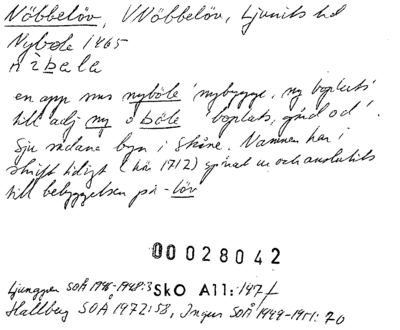 Nöbbelöv, V Nöbbelöv, Ljunits hd
Nybole 1465
en app sms nyböle 'nybygge, ny boplats'
till adj ny o böle 'boplats, gård od'.
Sju sådana byn i Skåne. Namnen har i
skrift tidigt (här 1712) och anslutits
till bebyggelsen på -löv
00028042
Ljunggren SOÅ 1946-1948:3 SkO All: 147
Hallberg SOÅ 1972:58, Ingers SOÅ 1949-1951: 70